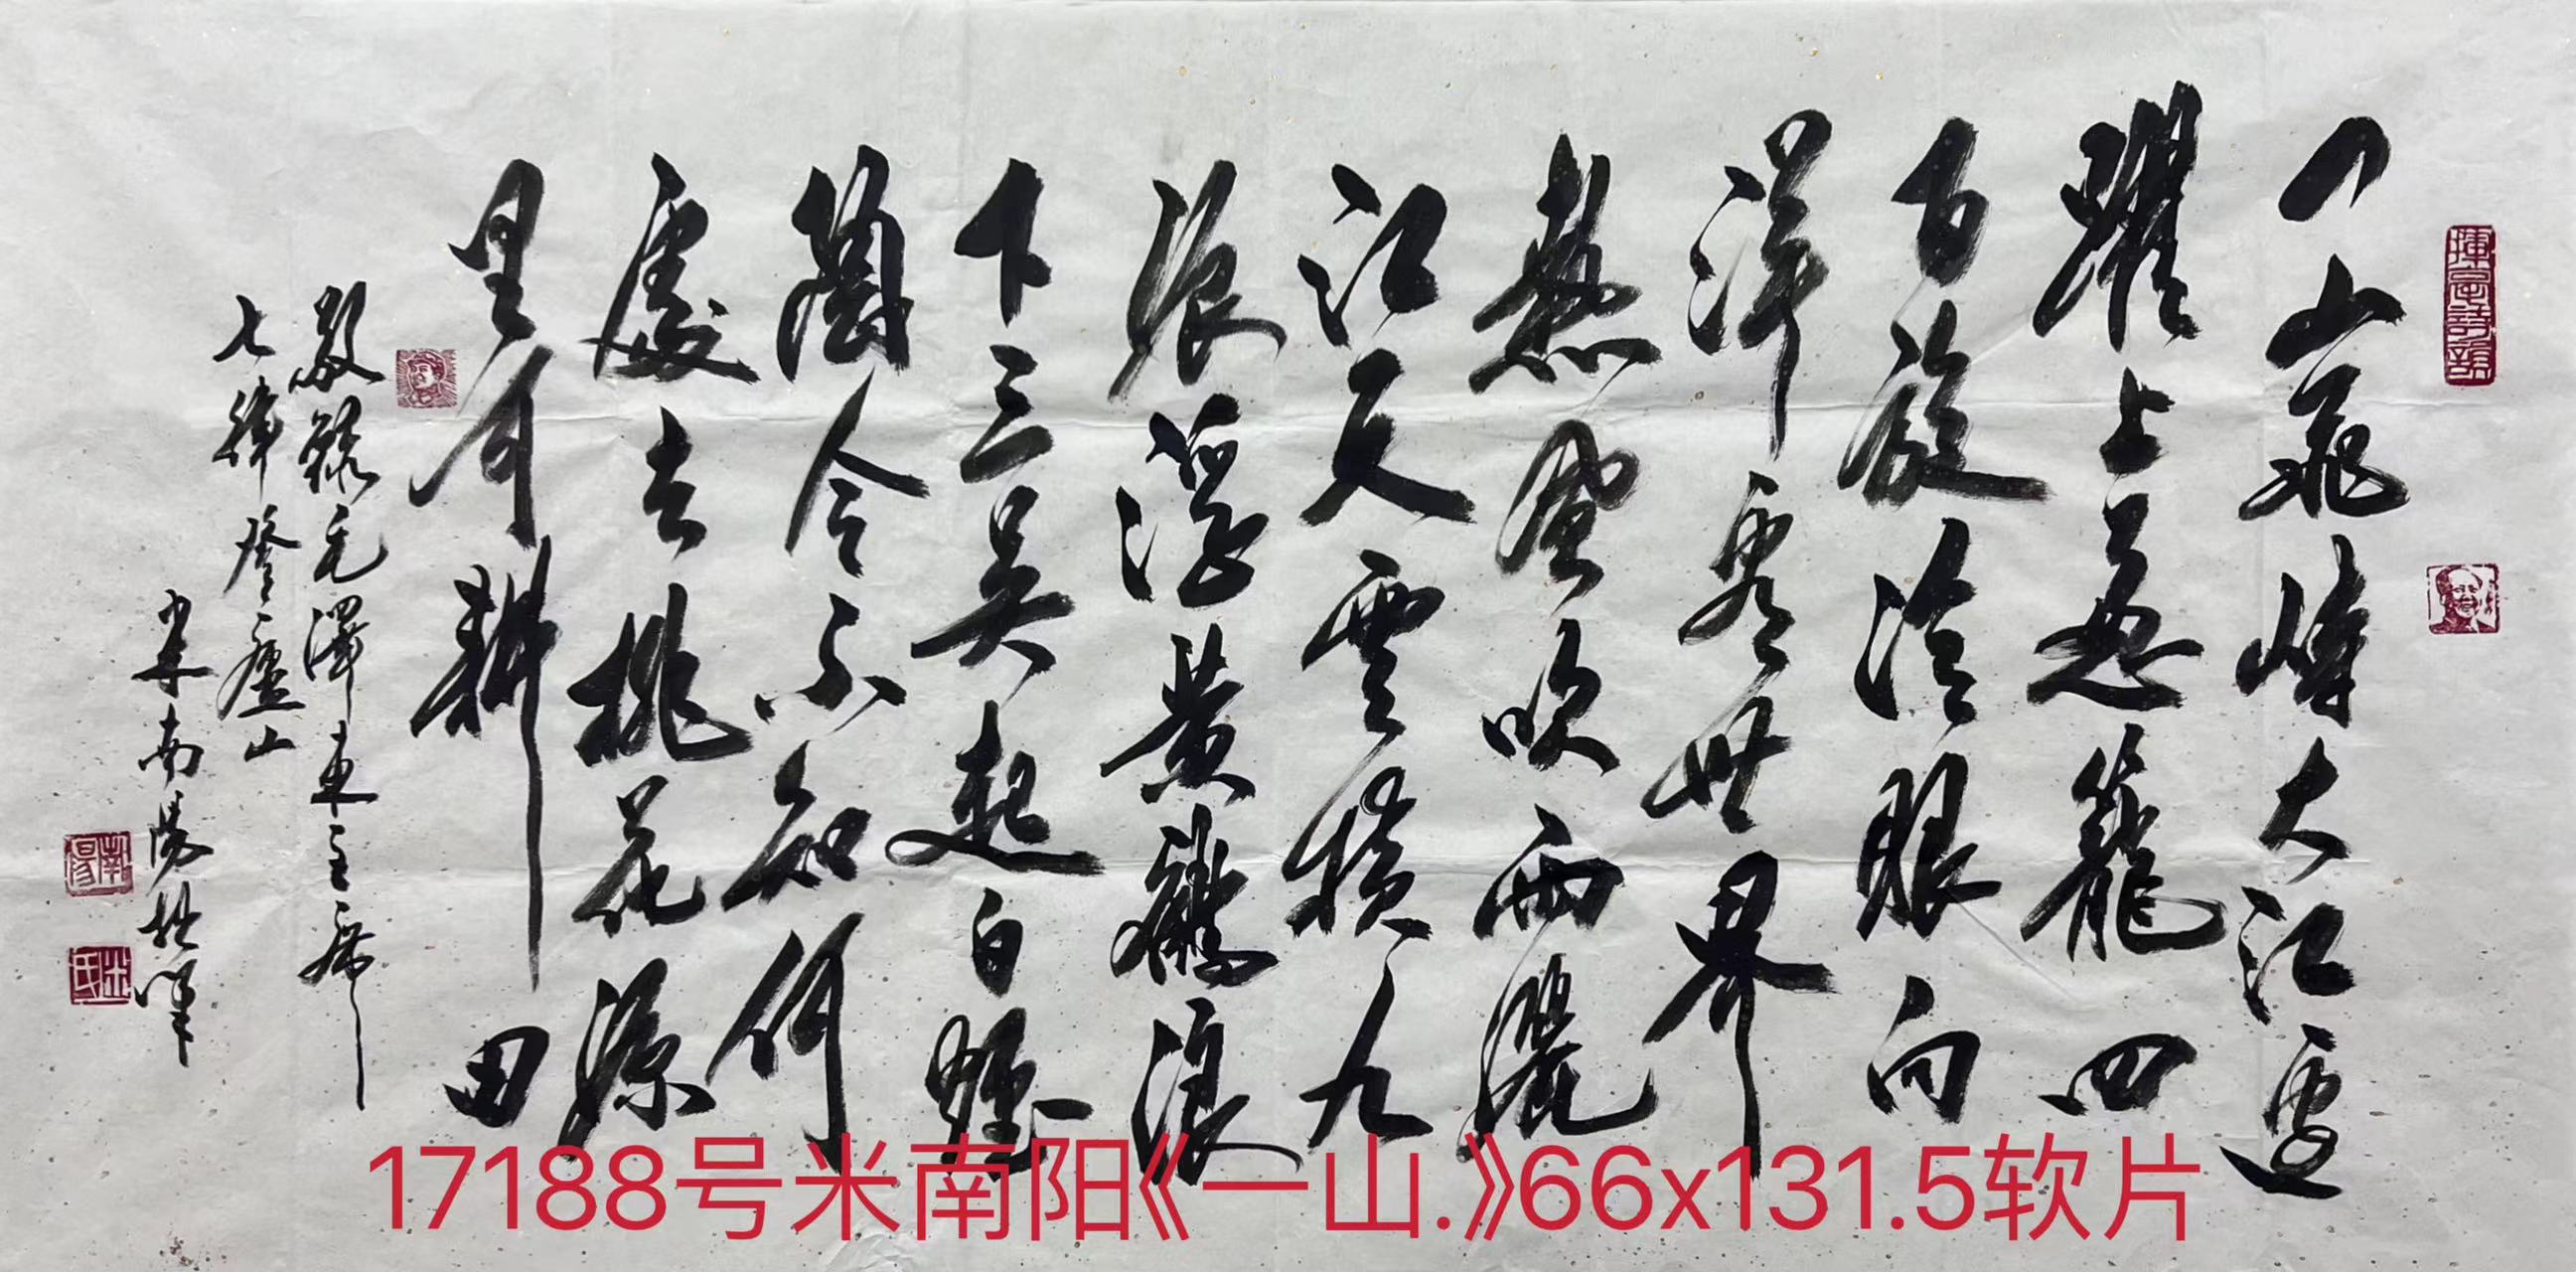 一山飛峙大江邊
躍上葱籠四
百旋冷眼向
洋看世界
熱風吹雨灑
江天雲橫九
派浮黄鶴浪
下三吴起白煙
陶令不知何
處去桃花源
里可耕田
敬録毛澤東主席
七律登廬山
米南陽拙筆
南陽
米氏
17188号米南阳《一山.》66x131.5软片